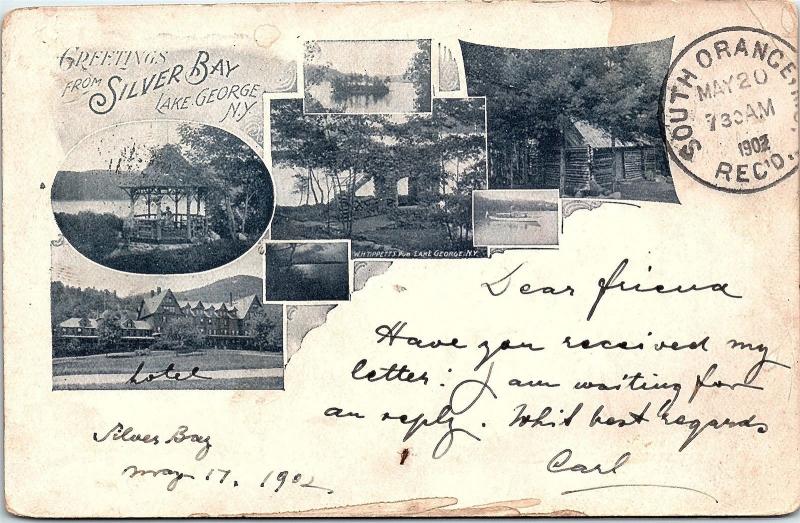 GREETINGS
FROM SILVER BAY
LAKE GEORGE
N.Y.
SOUTH ORANGE, N.J.
MAY 20
730 AM
1902
REC'D.
W.H. TIPPETTS PUB LAKE GEORGE. N.Y.
hotel
Dear friend
Have you received my
letter? I am waiting for
an reply. Whit best regards
Carl
Silver Bay
May 17. 1902.